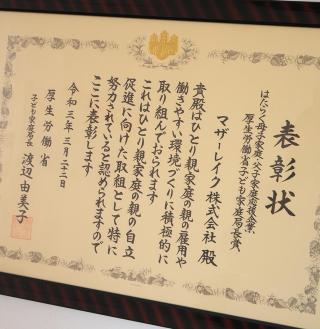 表彰状
はたらく母子家庭・父子家庭応援企業
厚生労働省子ども家庭局長賞
マザーレイク 株式会社 殿
貴殿はひとり親家庭の親の雇用や
働きやすい環境づくりに積極的に
取り組んでおられます
これはひとり親家庭の親の自立
促進に向けた取組として特に
努力されていると認められますので
ここに表彰します
令和三年三月二十二日
厚生労働省
子ども家庭局長 渡辺由美子